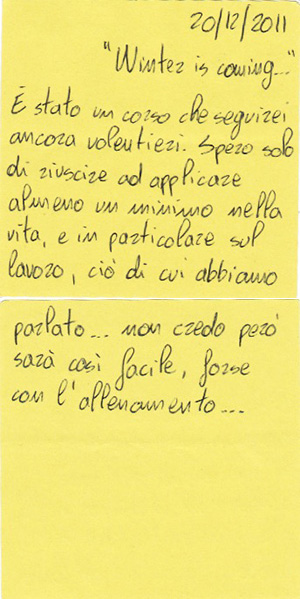 20/12/2011
"Winter is coming..."
È stato un corso che seguirei
ancora volentieri. Spero solo
di riuscire ad applicare
almeno un minimo nella
vita, e in particolare sul
lavoro, ciò di cui abbiamo
parlato... non credo però
sarà così facile, forse
con l'allenamento...